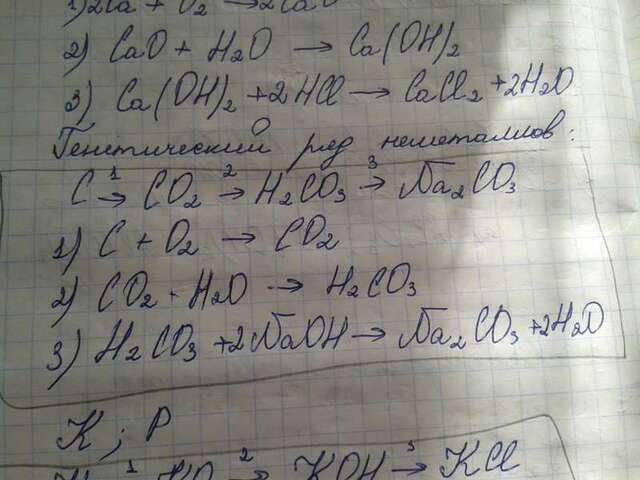 1) 2Ca + O₂ → 2CaO
2) CaO + H₂O → Ca(OH)₂
3) Ca(OH)₂ + 2HCl → CaCl₂ + 2H₂O
Генетический ряд неметаллов:
C →¹ CO₂ →² H₂CO₃ →³ Na₂CO₃
1) C + O₂ → CO₂
2) CO₂ + H₂O → H₂CO₃
3) H₂CO₃ + 2NaOH → Na₂CO₃ + 2H₂O
K ; P
1 2 → KOH →³ KCl